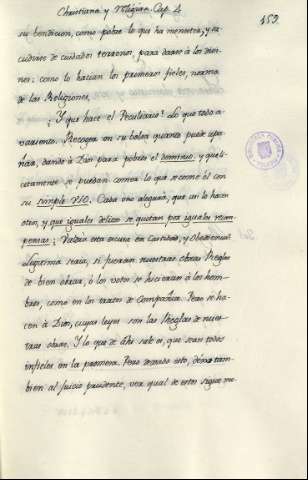 Christiana y Religiosa. Cap. 4
159
su bendicion, como pobre lo que ha menester, y sa-
cudirse de cuidados terrenos, para darse à los divi-
nos: como lo hacian los primeros fieles, norma
de las Religiones.
¿Y que hace el Peculiario? Lo que todo a-
variento. Recoger en su bolsa quanto puede
dando à Dios para pobres el dominio, y
se puedan comer lo que se comió él con
su simple uso. Cada uno alegará, que asi lo hacen
otros, y que iguales delitos se quitan por iguales recom-
pensas: Valdria esta escusa en Castidad, y Obediencia?
Legitima seria, si fueran nuestras obras Reglas
de bien obrar, ò los votos se hicieran à los hom-
bres, como en los tratos de Compañia. Pero se ha-
cen à Dios, cuyas leyes son las Reglas de nues-
tras obras. Y lo que de ahi sale es, que sean todos
infieles en la promesa. Pero dexando esto, dexo tam-
bien al juicio prudente, ver qual de estos sigue me-